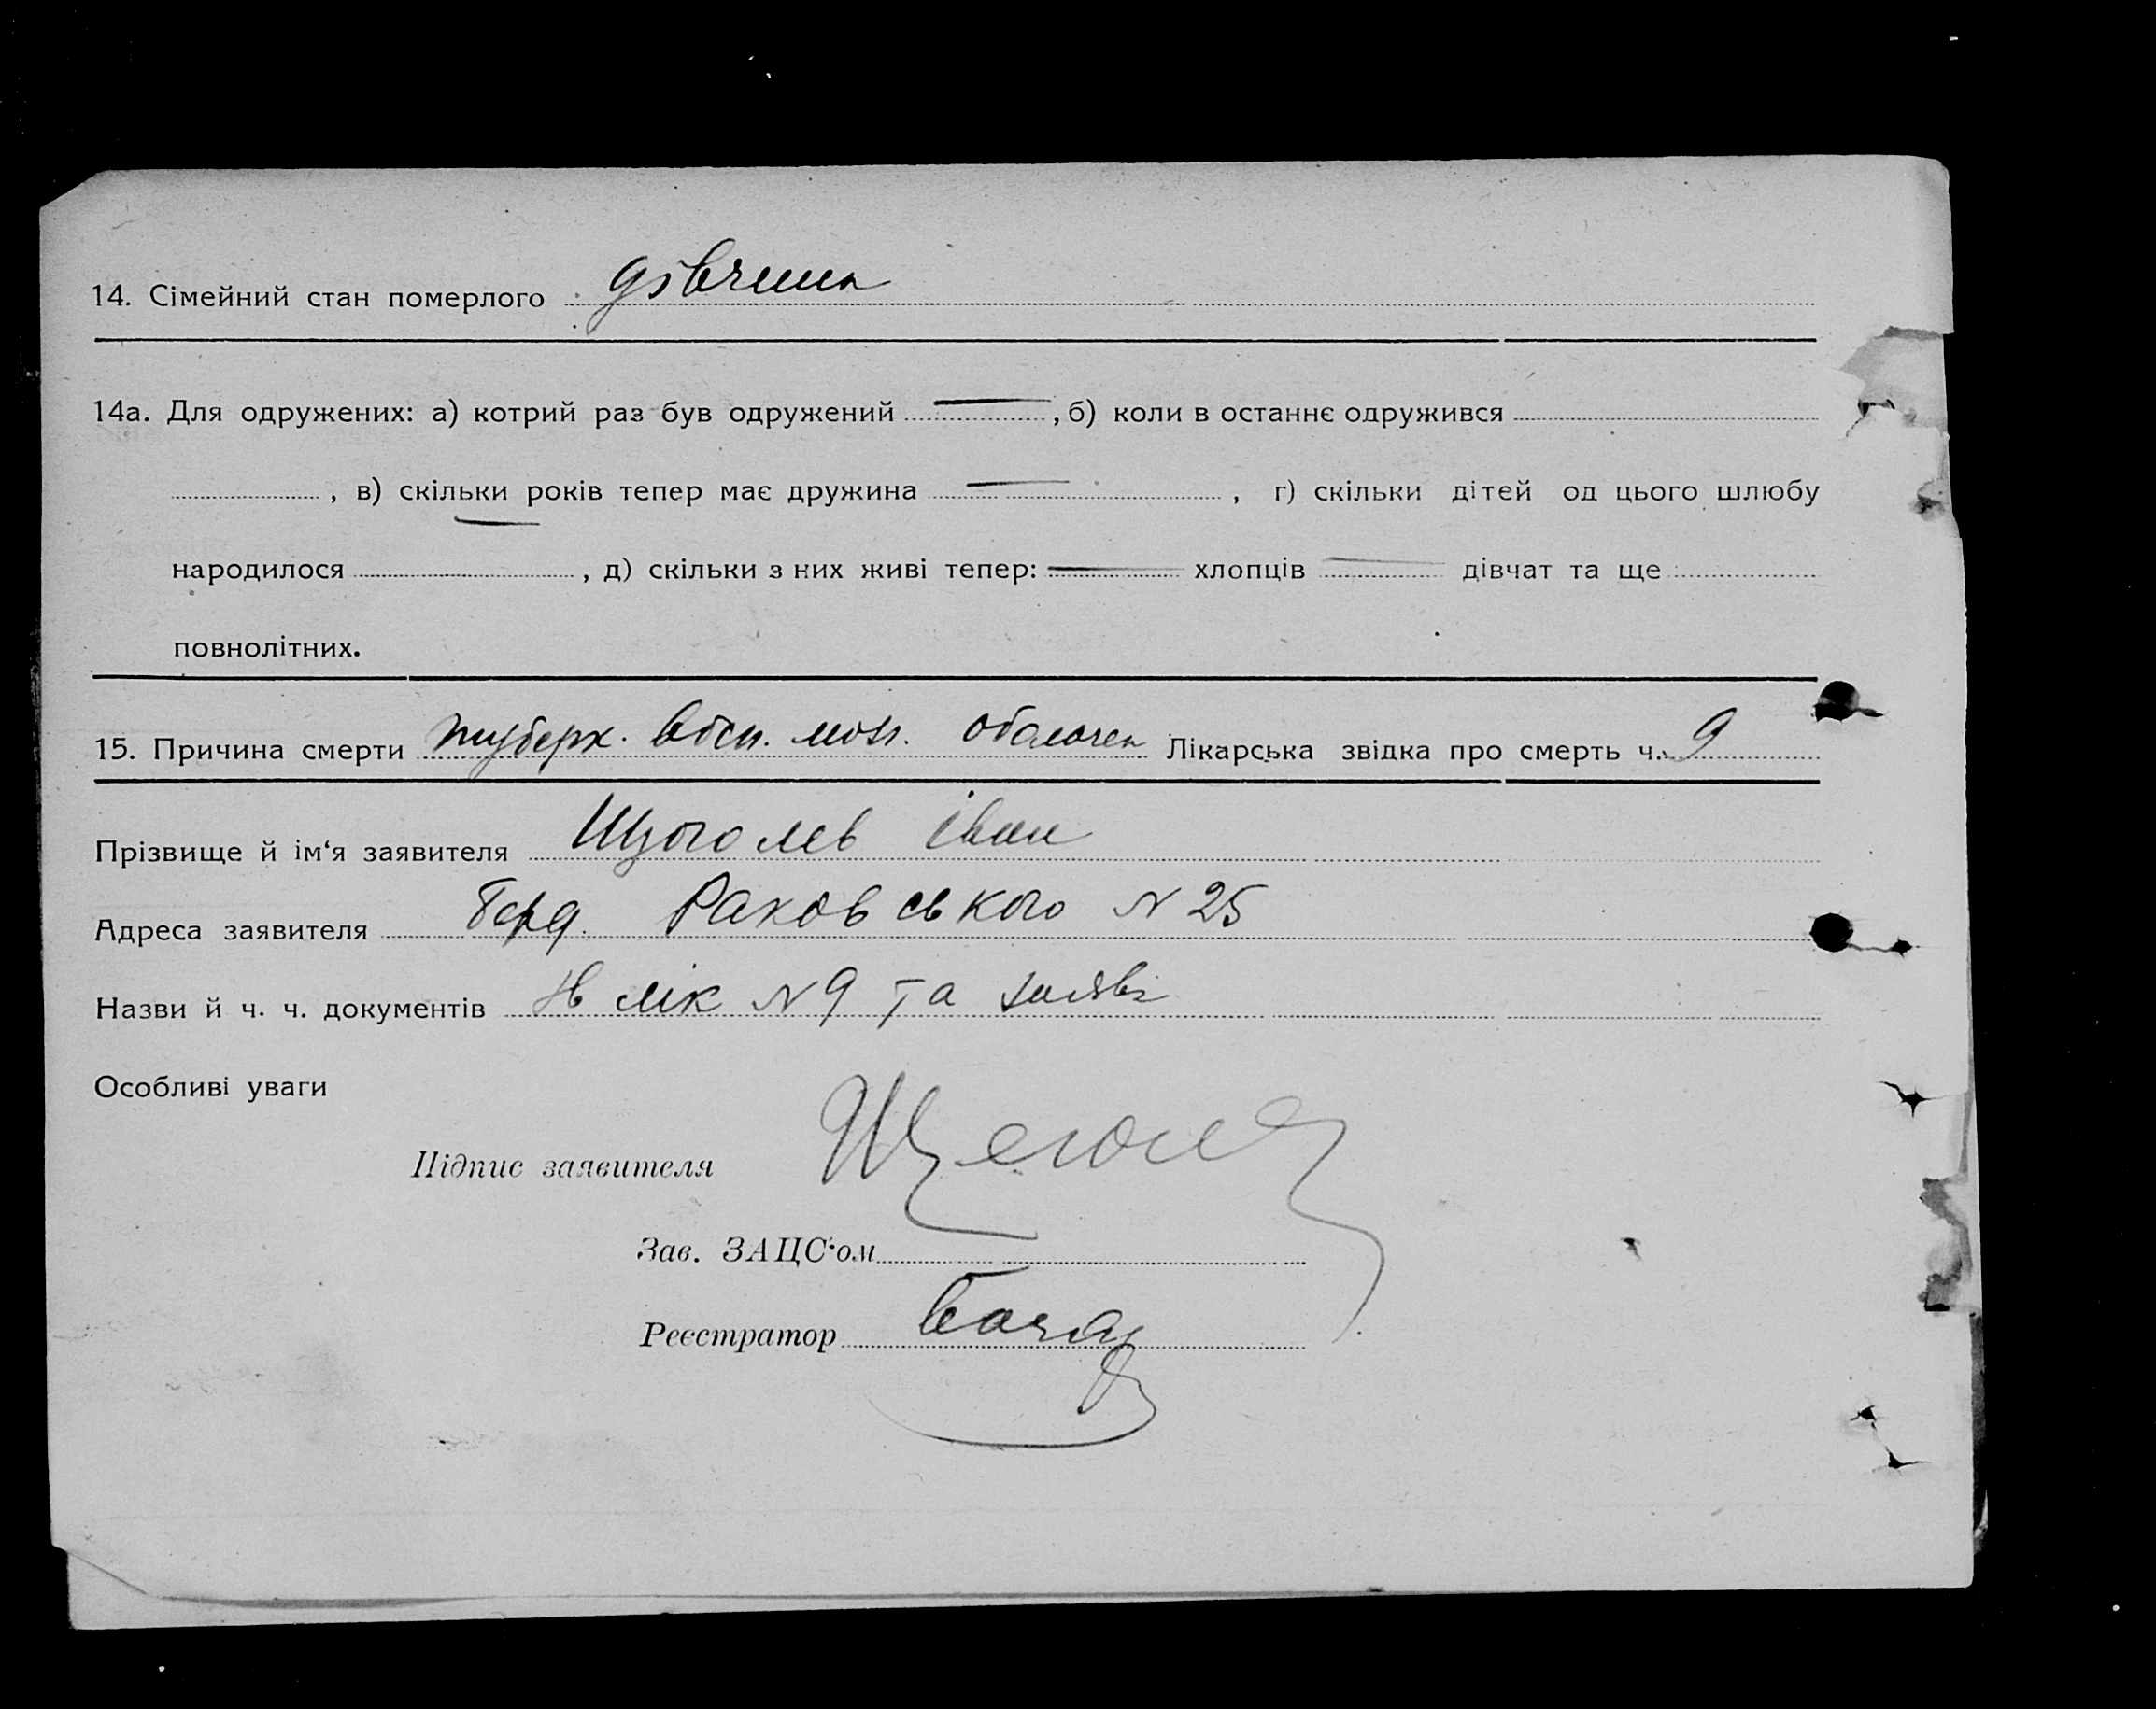 14. Сімейний стан померлого дівчина
14а. Для одружених: а) котрий раз був одружений , б) коли в останнє одружився
, в) скільки років тепер має дружина , г) скільки дітей од цього шлюбу
народилося , д) скільки з них живі тепер: хлопців дівчат та ще
повнолітних.
15. Причина смерти туберк. оболочек Лікарська звідка про смерть ч. 9
Прізвище й ім'я заявителя Щоголев Іван
Адреса заявителя Берд. Раковського N 25
Назви й ч. ч. документів лік N 9 та заяві
Особливі уваги
Підпис заявителя
Зав. ЗАЦС'ом
Реєстратор